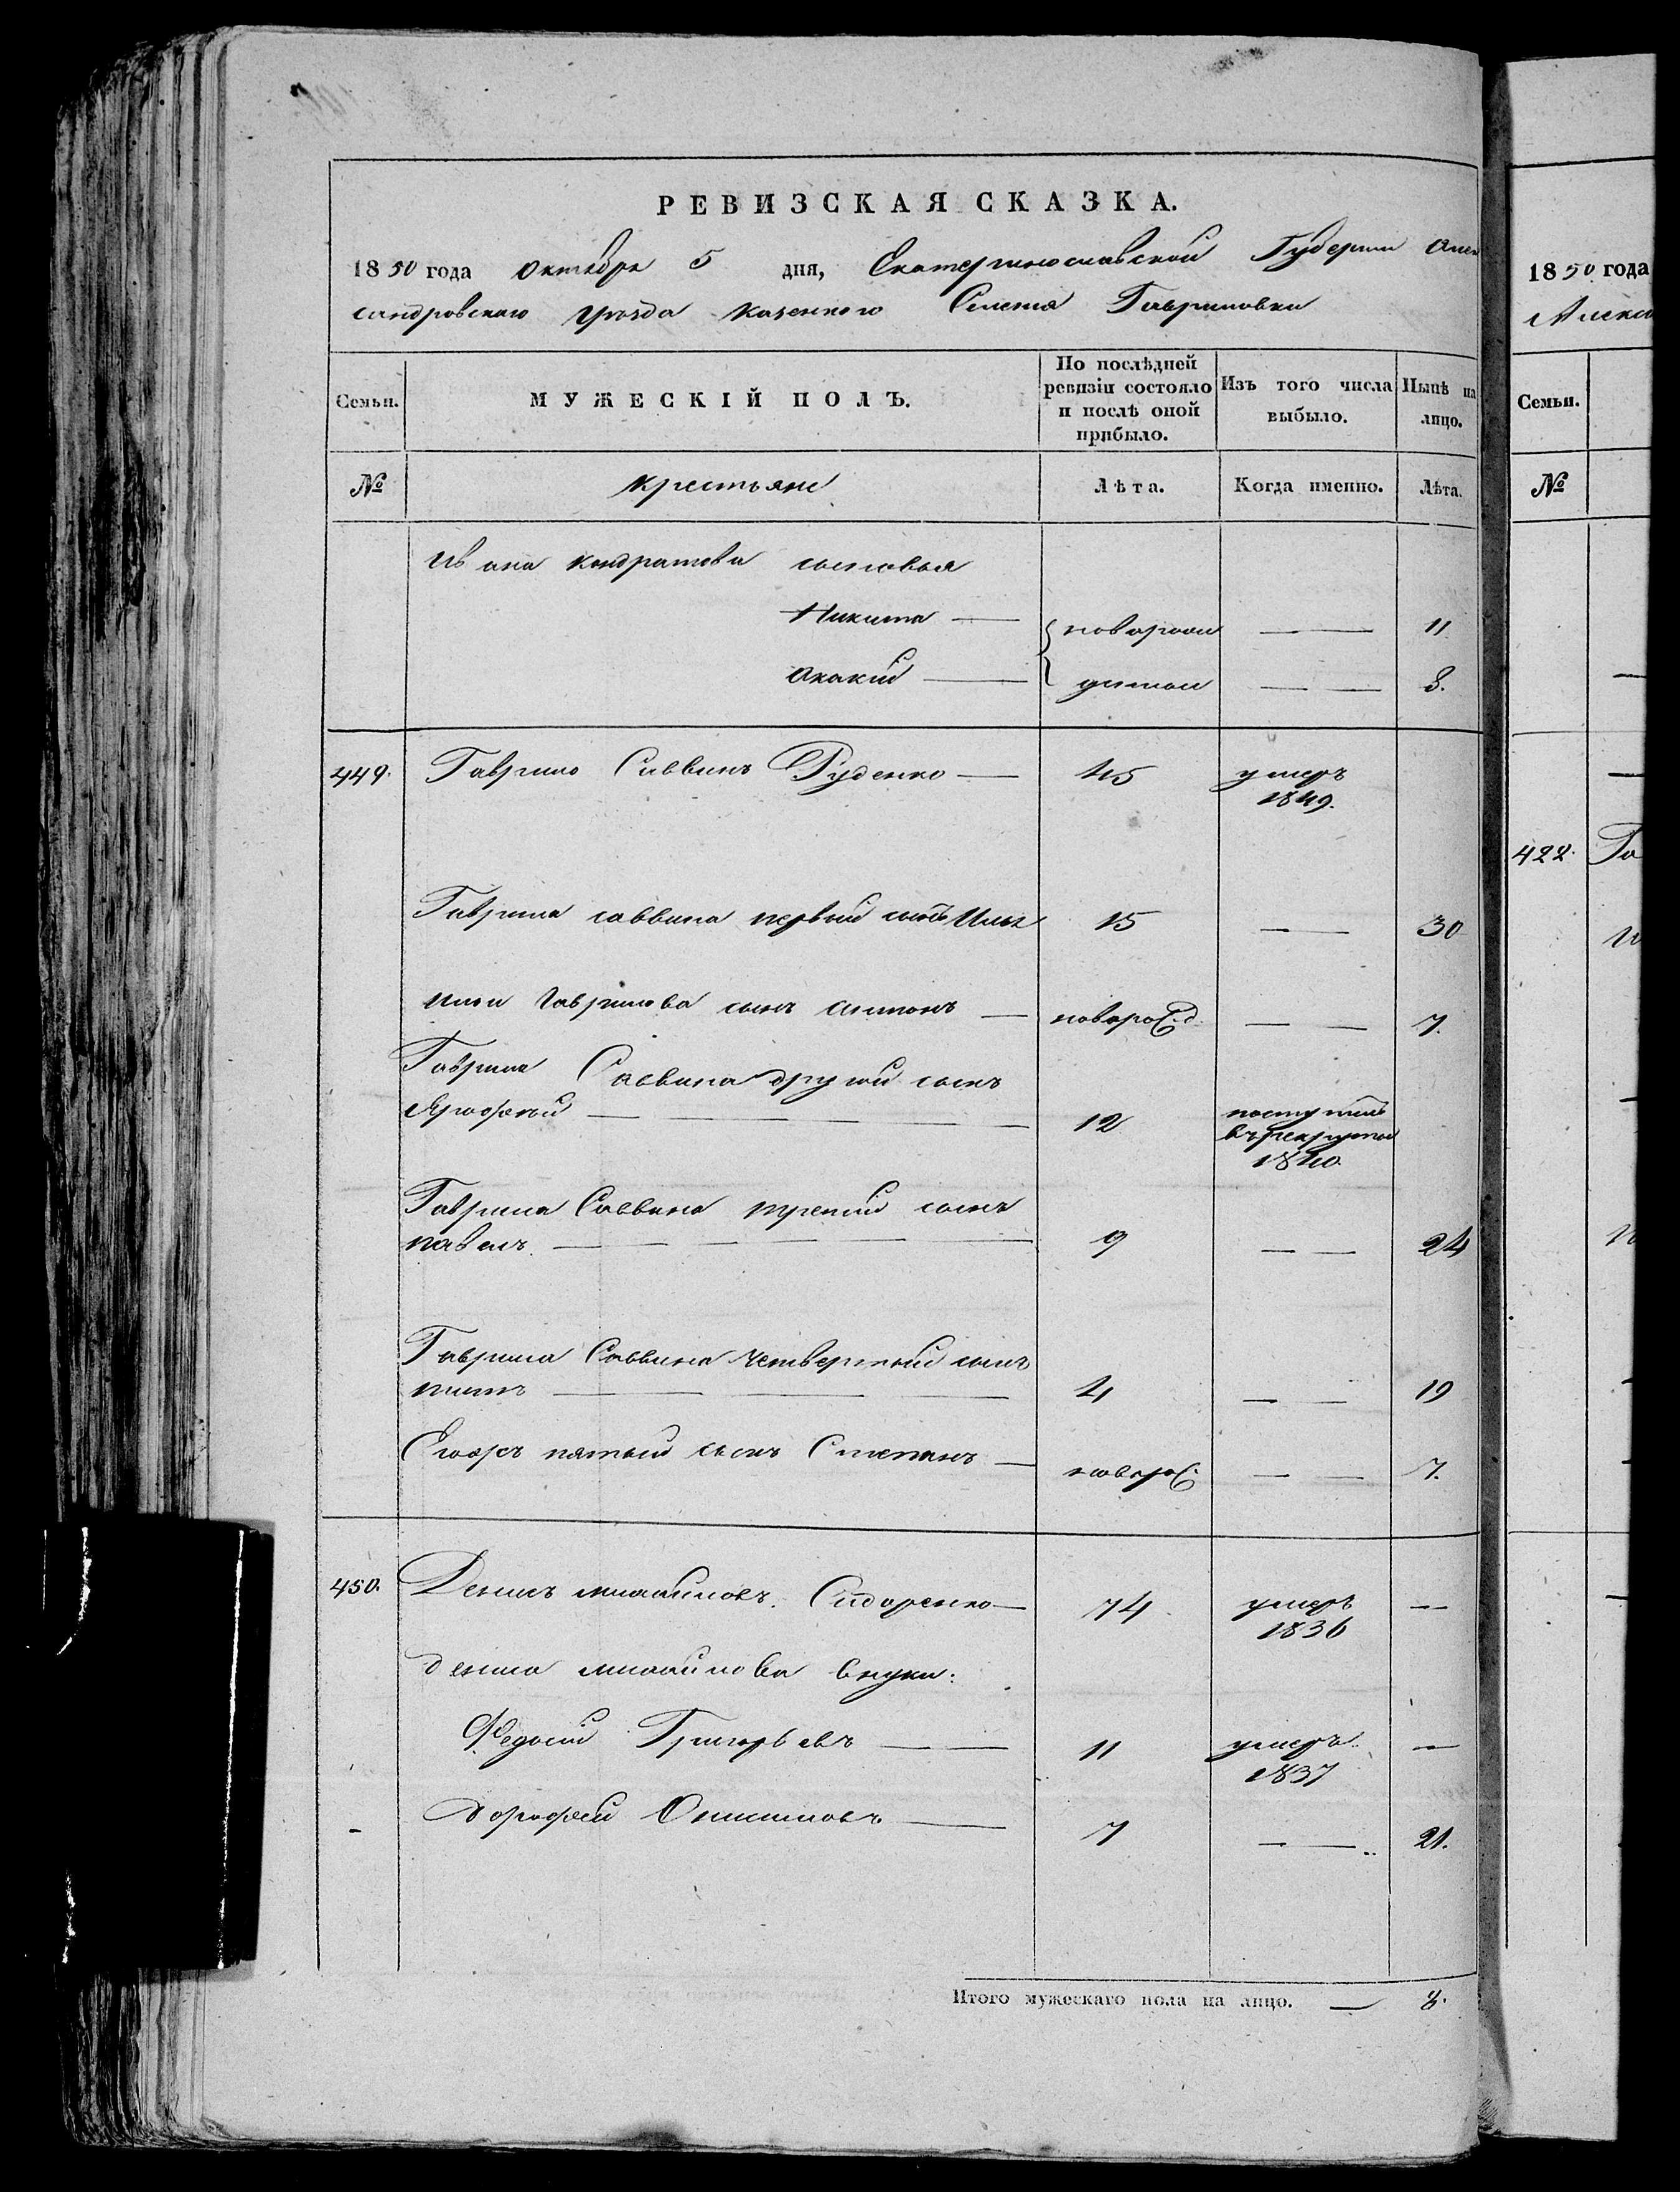 РЕВИЗСКАЯ СКАЗКА.
1850 года Октября 5 дня, Екатеринославской Губернии Алек
сандровского уезда казенного Селения Гавриловки
Семьи.
МУЖЕСКІЙ ПОЛЪ.
По послѣдней ревизіи состояло и послѣ оной прибыло.
Изъ того числа выбыло.
Нынѣ на лицо.
№
крестьяне
Лѣта.
Когда именно.
Лѣта.
Ивана Кондратова сыновья
Никита — новорож — 11
Акакий — — 8.
449. Гаврило Саввинъ Руденко — 45 умеръ 1849.
Гаврила саввина первый сынъ Илья 15 — 30
Ильи Гаврилова сынъ Антонъ — новорож — 7.
Гаврила Саввина другой сынъ
12 поступилъ въ рекруты 1840
Гаврила Саввина третий сынъ
павелъ. — 9 — 24
Гаврила Саввина четвертый сынъ
титъ — 4 — 19
Егоръ пятый сынъ Степанъ — новорож — 7.
450. Денисъ михайловъ. Сидоренко — 74 умеръ 1836 —
дениса михайлова внуки:
Федосий Григорьевъ — 11 умеръ 1837 —
дорофей Онисимовъ — 7 — 21.
Итого мужескаго пола на лицо. — 8.
1850 года
Алекса
Семьи.
№
422. Га